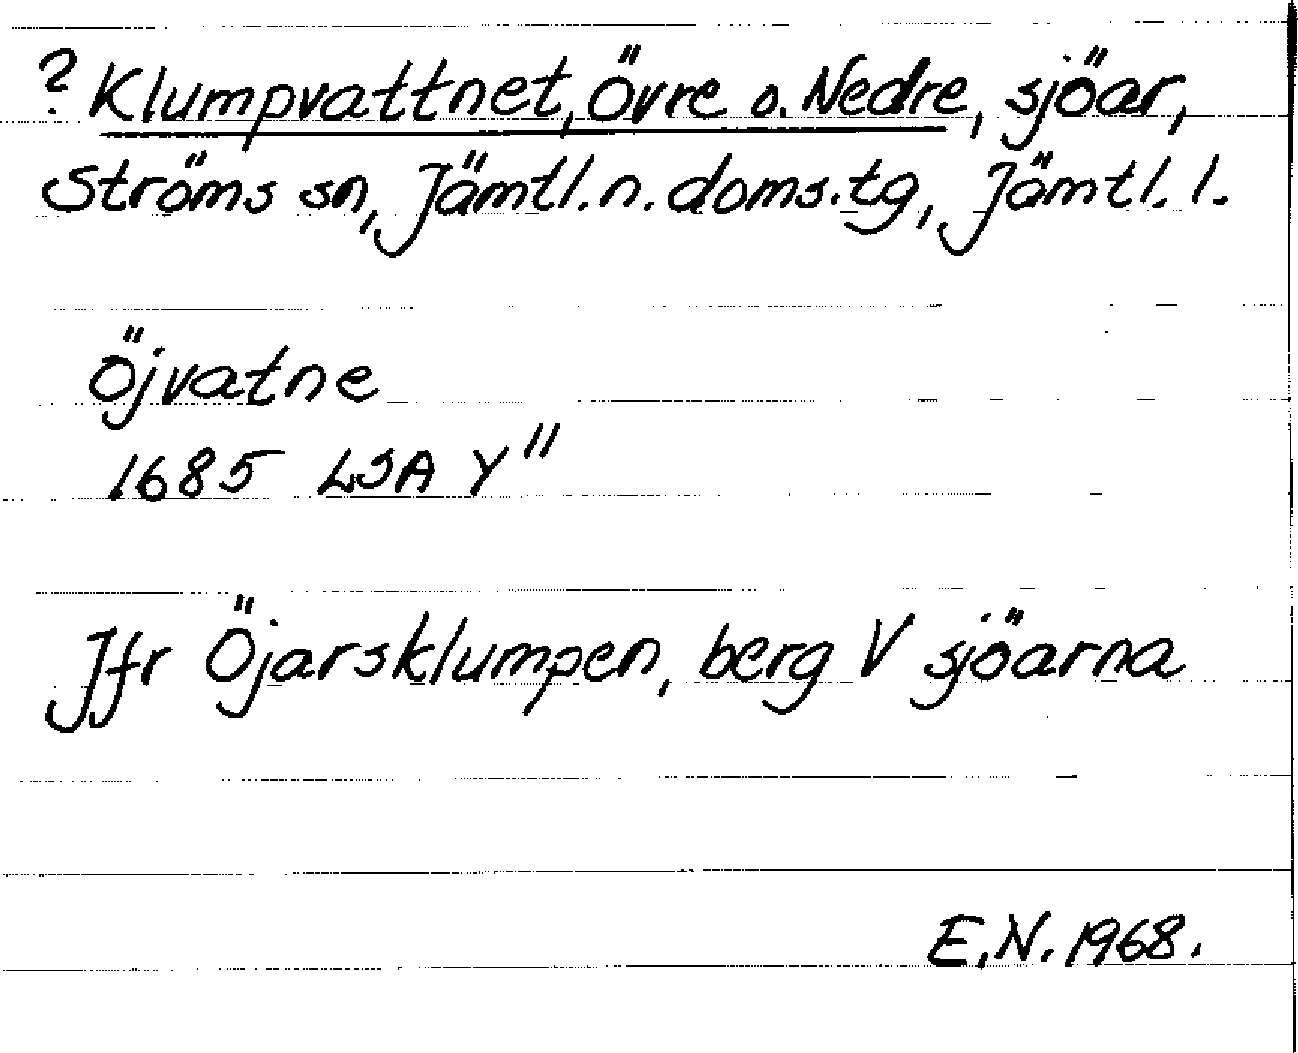 ? Klumpvattnet, Övre o. Nedre, sjöar,
Ströms sn, Jämtl. n. doms. tg, Jämtl. l.
Öjvatne
1685 LSA Y"
Jfr Öjarsklumpen, berg V sjöarna
E.N. 1968.